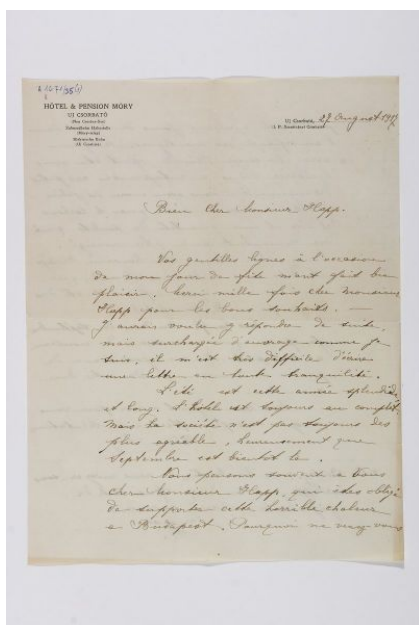 HÔTEL & PENSION MÓRY
UJ CSORBATÓ
27 August 19
Bien cher Monsieur Hopp.
Vos gentilles lignes à l'occasion
de mon jour de fête m'ont fait bien
plaisir. Merci mille fois cher Monsieur
Hopp pour les bons souhaits. —
J'aurais voulu y répondre de suite,
mais surchargée d'ouvrage comme je
suis, il m'est très difficile d'écrire
une lettre en toute tranquilité.
L'été est cette année splendide
et long. L'hôtel est toujours au complet,
mais la société n'est pas toujours des
plus agréable, heureusement que
Septembre est bientôt là.
Nous pensons souvent a vous
cher Monsieur Hopp, qui êtes obligé
de supporter cette horrible chaleur
a Budapest. Pourquoi ne venez vous